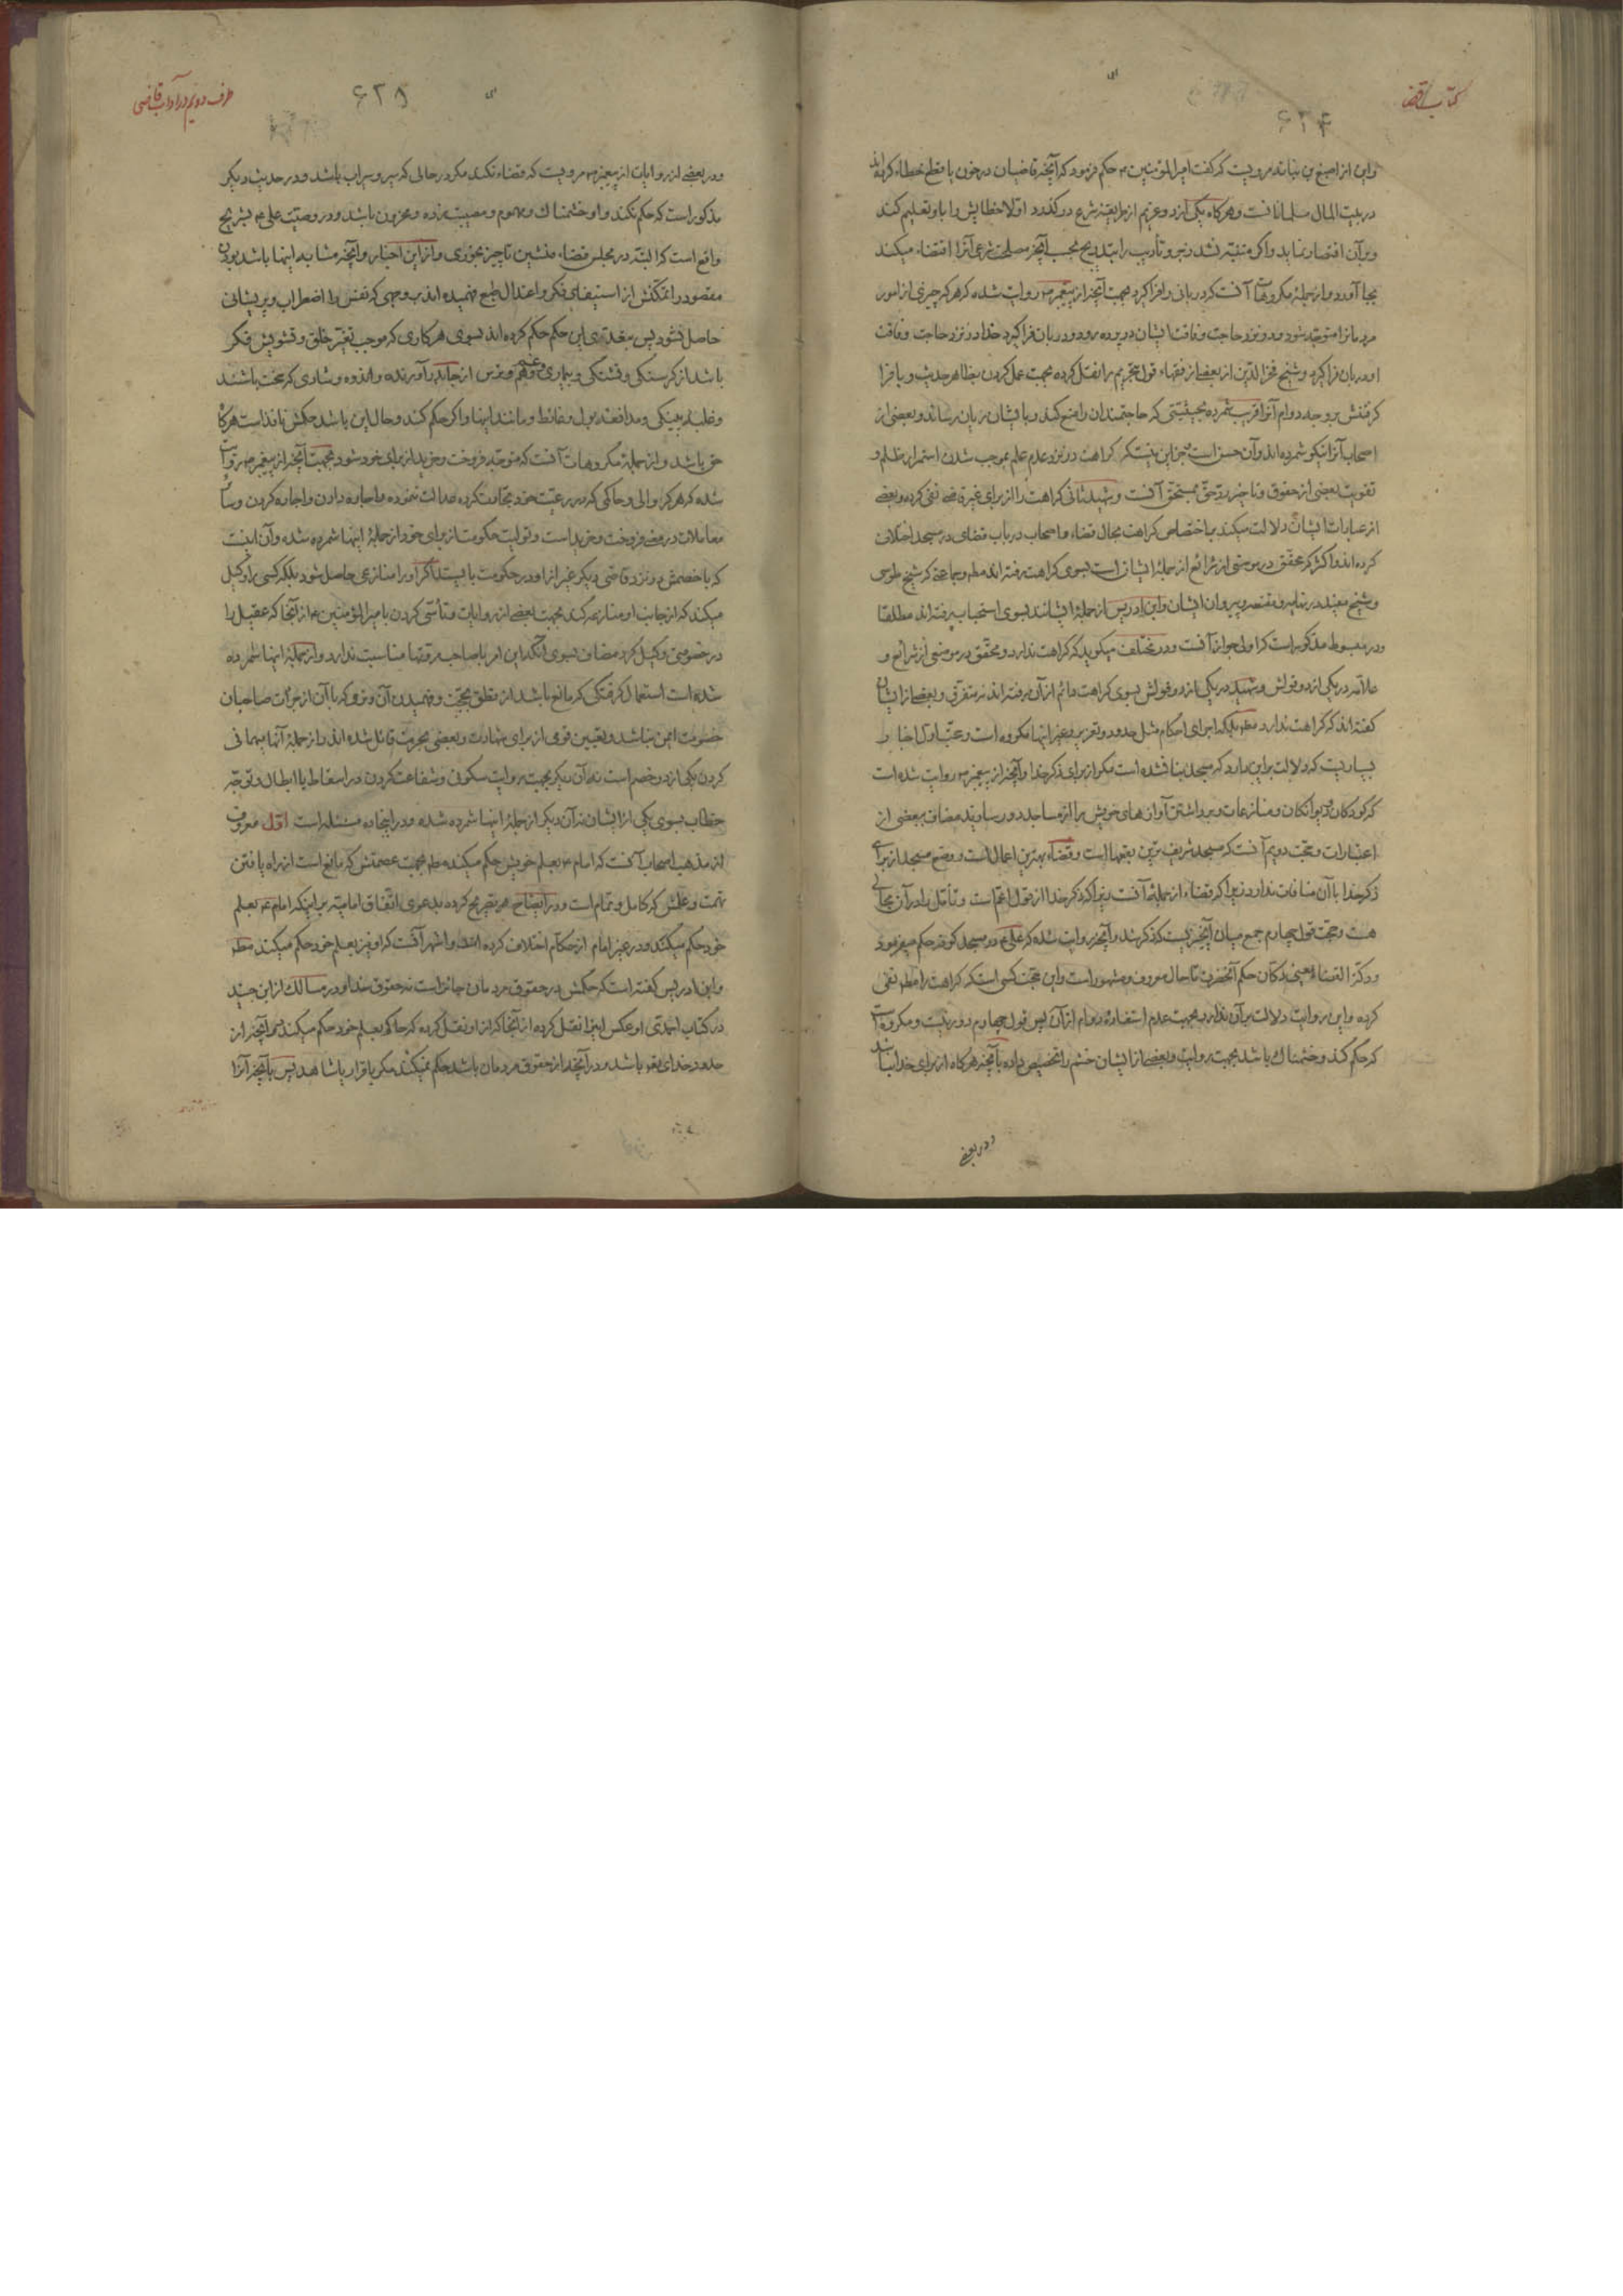 كتاب القضاء
۶۲۴
واین از اصبغ بن نباته مرویست که گفت امیرالمؤمنین ع حکم فرمود که آنچه قاضیان در خون یا قطع خطاء کرده اند
در بیت المال مسلمانانست وهرگاه یکی از دو غریم از طریقه شرع درگذرد اولا خطایش را باو تعلیم کند
وبر آن اقتصار نماید واگر متنبه نشد زجر وتأدیب را بتدریج بحسب آنچه مصلحت شرعی آنرا اقتضاء میکند
بجا آورد واز جمله مکروهات آنست که دربانی را فراگیرد بجهت آنچه از پیغمبر ص روایت شده که هر که چیزی از امور
مردمانرا متوجه شود ودر نزد حاجت وفاقت ایشان در پرده رود ودربان فراگیرد خدا در نزد حاجت وفاقت
او دربان فراگیرد وشیخ فخرالدین از بعضی از فقهاء قول بتحریم را نقل کرده بجهت عمل کردن بظاهر حدیث وبا فرا
گرفتنش بر وجه دوام آنرا قریب شمرده بحیثیتی که حاجتمندان را منع کند وبایشان زیان رساند وبعضی از
اصحاب آنرا نیکو شمرده اند وآن حسن است
تفویت بعضی از حقوق وتأخیر رد حق بمستحق آنست وشهید ثانی کراهت را از برای غیر قاضی نفی کرده وبعضی
از عبارات ایشان دلالت میکند بر اختصاص کراهت بحال قضاء واصحاب در باب قضای در مسجد اختلاف
کرده اند واکثر که محقق در موضعی از شرائع از جمله ایشان است بسوی کراهت رفته اند مطلقا وجماعتی که شیخ طوسی
وشیخ مفید در نهایه ومقنعه وپیروان ایشان وابن ادریس از جمله ایشانند بسوی استحباب رفته اند مطلقا
ودر مبسوط مذکور است که اولی جواز آنست ودر مختلف میگوید که کراهت ندارد ومحقق در موضعی از شرائع و
علامه در یکی از دو قولش وشهید در یکی از دو قولش بسوی کراهت دائم از آن رفته اند نه متفرق وبعضی از ایشان
گفته اند که کراهت ندارد مطلقا بلکه اجرای احکام مثل حدود وتعزیر وغیر اینها مکروه است وحجت اول اخبار
بسیاریست که دلالت بر این دارد که مسجد بنا نشده است مگر از برای ذکر خدا وآنچه از پیغمبر ص روایت شده است
که کودکان ودیوانگان ومنازعات وبرداشتن آوازهای خویش را از مساجد دور سازید مضاف ببعضی از
اعتبارات وحجت دویم آنست که مسجد شریف ترین بقعها است وقضاء بهترین اعمال است ووضع مسجد از برای
ذکر خدا با آن منافات ندارد زیرا که قضاء از جمله آنست زیرا که ذکر خدا از قول اعم است وتأمل را در آن مجالی
هست وحجت قول چهارم جمع میان آنچیزیست که ذکر شد وآنچه روایت شده که علی ع در مسجد کوفه حکم میفرمود
ودکة القضاء یعنی دکان حکم آنحضرت تا حال معروف ومشهور است واین حجت کسی است که کراهت را مطلقا نفی
کرده واین روایت دلالت بر آن ندارد بجهت عدم استفاده دوام از آن پس قول چهارم دور نیست ومکروهست
که حکم کند وخشمناک باشد بجهت روایت وبعضی از ایشان خشم را تخصیص داده بآنچه هرگاه از برای خدا نباشد
ودر بعضی
طرف دویم در آداب قاضی
۶۲۵
ودر بعضی از روایات از پیغمبر ص مرویست که قضاء نکند مگر در حالی که سیر وسیراب باشد ودر حدیث دیگر
مذکور است که حکم نکند واو خشمناک ومهموم ومصیبت زده ومحزون باشد ودر وصیت علی ع بشریح
واقع است که البته در مجلس قضاء منشین تا چیز بخوری واز این اخبار وآنچه مشابه اینها باشد بودن
مقصود را تمکنش از استیفای فکر واعتدال طبع فهمیده اند بر وجهی که نفس را اضطراب وپریشانی
حاصل نشود پس بتعدی این حکم حکم کرده اند بسوی هر کاری که موجب تغییر خلق وتشویش فکر
باشد از گرسنگی وتشنگی وبیماری وغم وهم وترس از جا بدر آورنده واندوه وشادی که سخت باشند
وغلبه پینکی ومدافعه بول وغائط ومانند اینها واگر حکم کند وحال این باشد حکمش نافذ است هرگاه
حق باشد واز جمله مکروهات آنست که متوجه فروخت وخرید از برای خود شود بجهت آنچه از پیغمبر ص روایت
شده که هر که والی وحاکمی که در رعیت خود تجارت کرده عدالت ننموده واجاره دادن واجاره کردن وسائر
معاملات در معنی فروخت وخرید است وتولیت حکومت از برای خود از جمله اینها شمرده شده وآن اینست
که با خصمش در نزد قاضی دیگر غیر از او در حکومت بایستد اگر او را منازعی حاصل شود بلکه کسی را وکیل
میکند که از جانب او منازعه کند بجهت بعضی از روایات وتأسی کردن بامیرالمؤمنین ع از آنجا که عقیل را
در خصومتی وکیل کرد مضاف بسوی آنکه این امر با صاحب قضا مناسبت ندارد واز جمله اینها شمرده
شده است استعمال گرفتگی که مانع باشد از نطق بحجت وفهمیدن آن ونرمی که با آن از جرأت صاحبان
خصومت ایمن نباشد وتعیین قومی از برای شهادت وبعضی بحرمت قائل شده اند واز جمله آنها مهمانی
کردن یکی از دو خصم است نه آن دیگر بجهت روایت سکونی وشفاعت کردن در اسقاط یا ابطال وتوجه
خطاب بسوی یکی از ایشان نه آن دیگر از جمله اینها شمرده شده ودر اینجا ده مسئله است اول معروف
از مذهب اصحاب آنست که امام ع بعلم خویش حکم میکند مطلقا بجهت عصمتش که مانع است از راه یافتن
تهمت وعلمش که کامل وتمام است ودر ایضاح هم تصریح کرده بدعوی اتفاق امامیه بر اینکه امام ع بعلم
خود حکم میکند ودر غیر امام از حکام اختلاف کرده اند واشهر آنست که او نیز بعلم خود حکم میکند مطلقا
وابن ادریس گفته است که حکمش در حقوق مردمان جائز است نه حقوق خدا ودر مسالک از ابن جنید
در کتاب احمدی او عکس اینرا نقل کرده از آنجا که از او نقل کرده که حاکم بعلم خود حکم میکند در آنچه از
حدود خدای تعالی باشد ودر آنچه از حقوق مردمان باشد حکم نمیکند مگر باقرار یا شاهد پس بآنچه آنرا